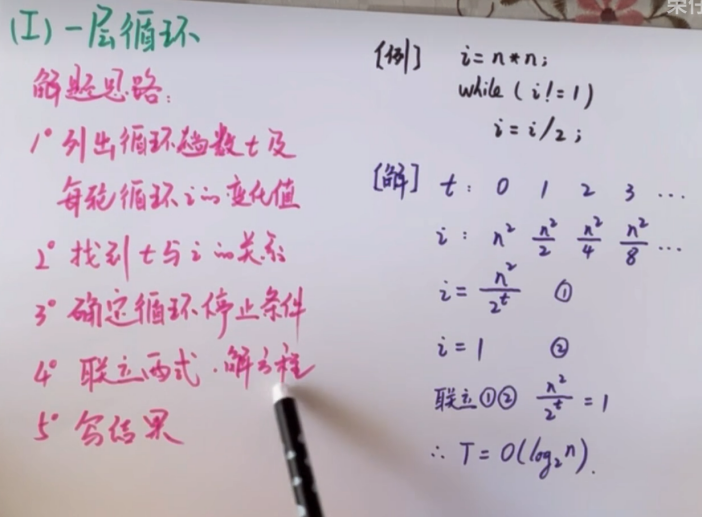 (I) 一层循环
解题思路:
1° 列出循环趟数t及
每轮循环i的变化值
2° 找到t与i的关系
3° 确定循环停止条件
4° 联立两式,解方程
5° 写结果
[例] i=n*n;
while (i!=1)
i=i/2;
[解] t: 0 1 2 3 ...
i: n² n²/2 n²/4 n²/8 ...
i = n²/2^t ①
i=1 ②
联立①② n²/2^t = 1
∴ T=O(log₂n).